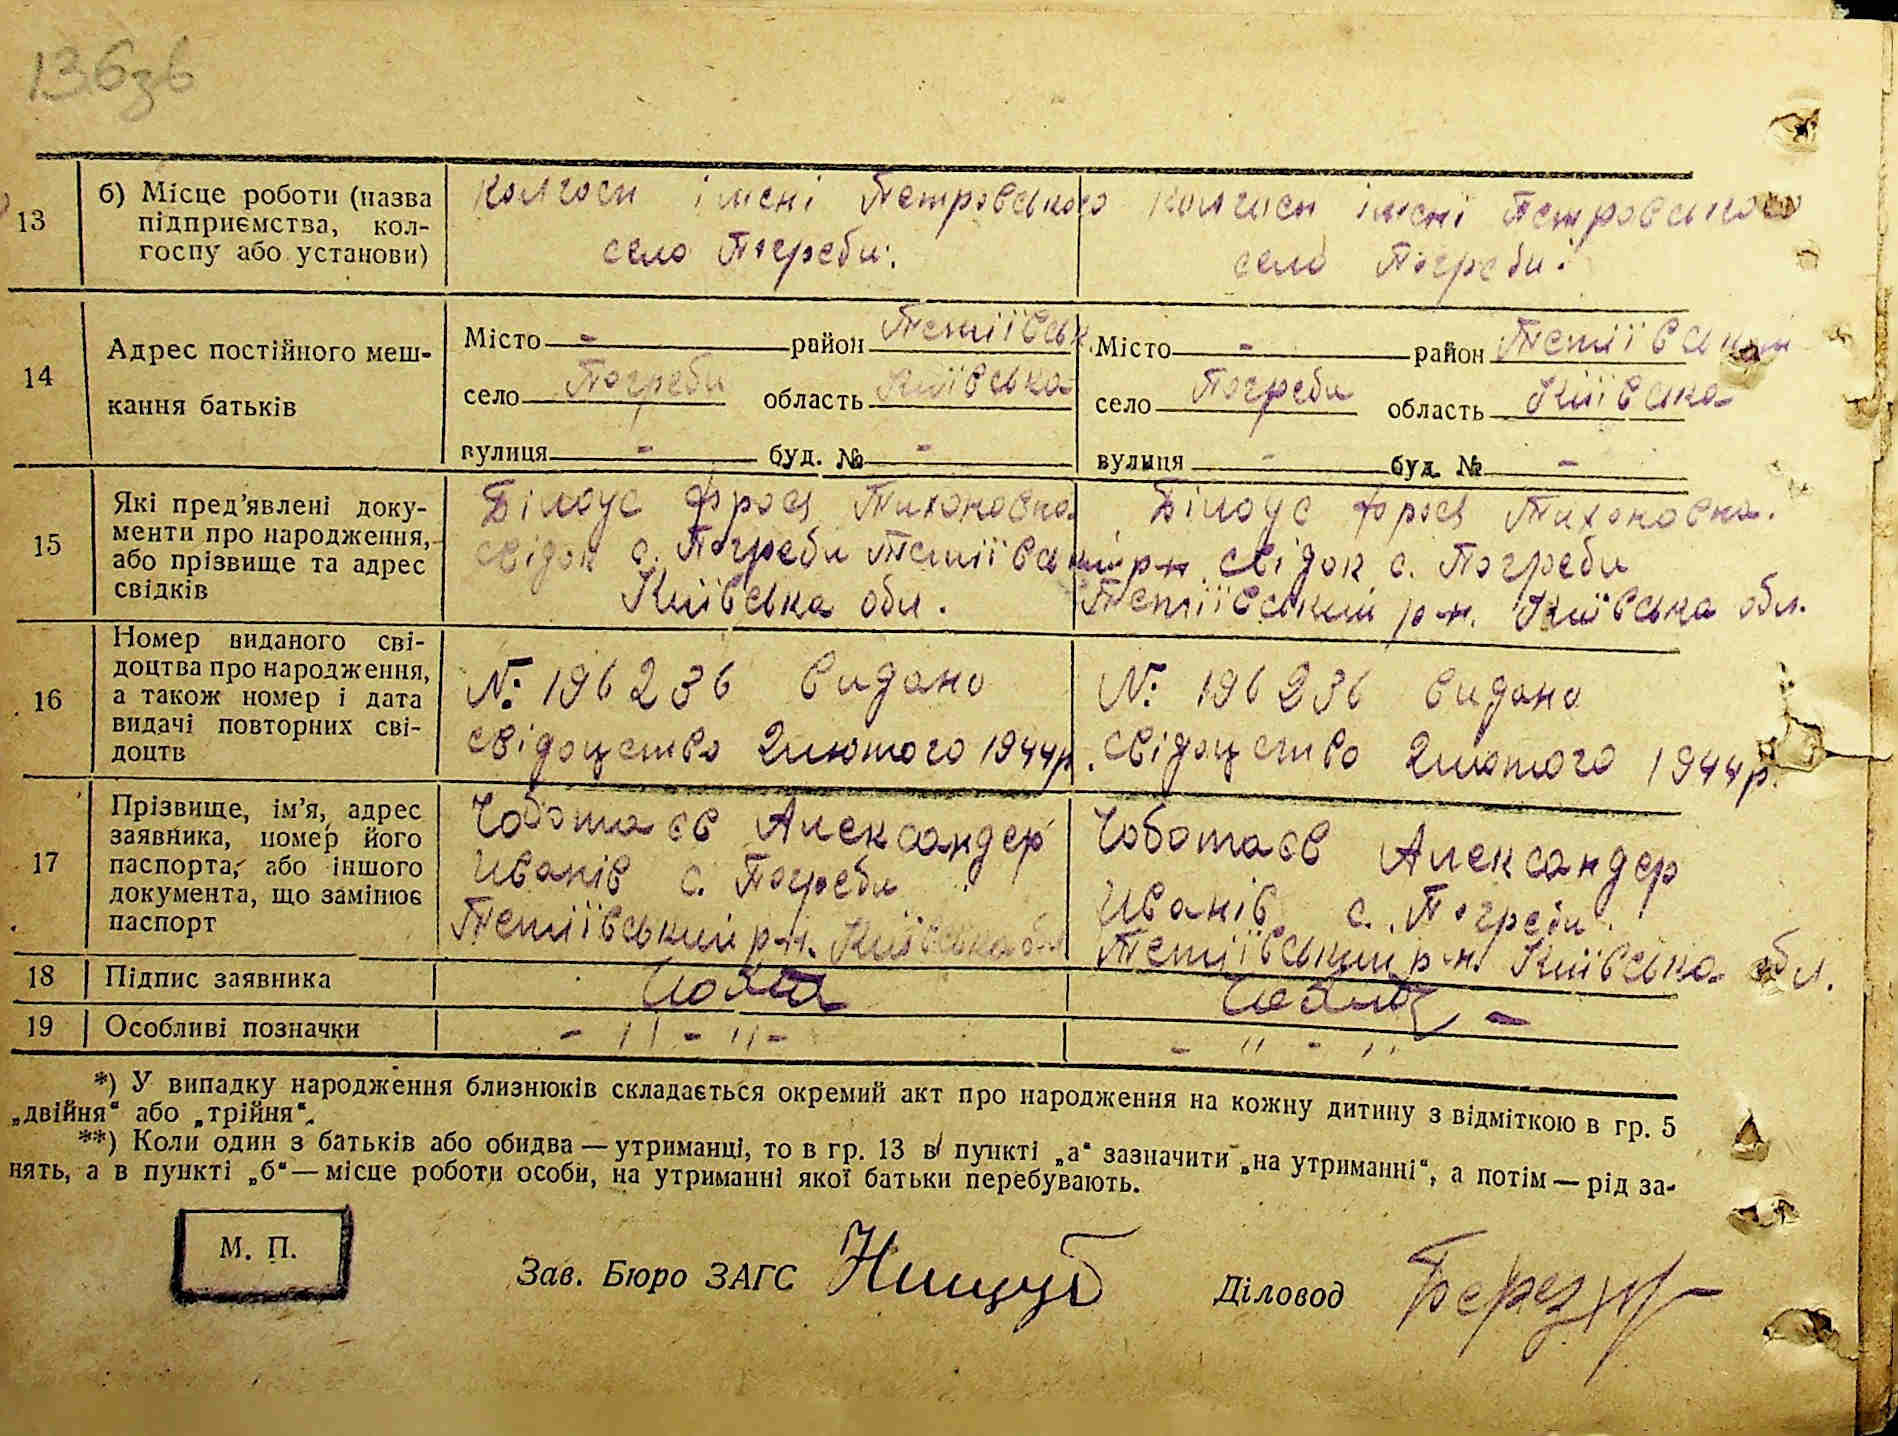 136зв
13
б) Місце роботи (назва
підприємства, кол-
госпу або установи)
колгосп імені Петровського
село Погреби.
колгосп імені Петровського
село Погреби.
14
Адрес постійного меш-
кання батьків
Місто - район Тетіївськ
село Погреби область Київська
вулиця - буд. № -
Місто - район Тетіївський
село Погреби область Київська
вулиця - буд. № -
15
Які пред’явлені доку-
менти про народження,
або прізвище та адрес
свідків
Білоус Фрося Тихоновна
свідок с. Погреби Тетіївський р-н
Київська обл.
Білоус Фрося Тихоновна.
свідок с. Погреби
Тетіївський р-н. Київська обл.
16
Номер виданого сві-
доцтва про народження,
а також номер і дата
видачі повторних сві-
доцтв
№: 196236 видано
свідоцство 2 лютого 1944 р.
№: 196236 видано
свідоцство 2 лютого 1944 р.
17
Прізвище, ім’я, адрес
заявника, номер його
паспорта, або іншого
документа, що замінює
паспорт
Чоботаєв Александер
Иванів с. Погреби
Тетіївський р-н. Київська обл
Чоботаєв Александер
Иванів с. Погреби.
Тетіївський р-н. Київська обл.
18
Підпис заявника
19
Особливі позначки
- '' - '' -
- '' - ''
*) У випадку народження близнюків складається окремий акт про народження на кожну дитину з відміткою в гр. 5
„двійня“ або „трійня“.
**) Коли один з батьків або обидва — утриманці, то в гр. 13 в пункті „а“ зазначити „на утриманні“, а потім — рід за-
нять, а в пункті „б“ — місце роботи особи, на утриманні якої батьки перебувають.
М. П.
Зав. Бюро ЗАГС
Діловод